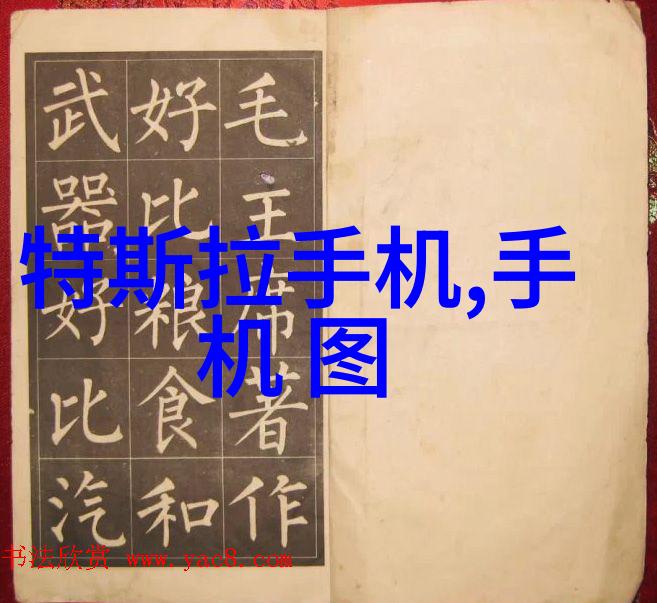 毛主席著作
好比粮食和
武器好比汽
特斯拉手机,手
机 图
书法欣赏 www.yac8.com